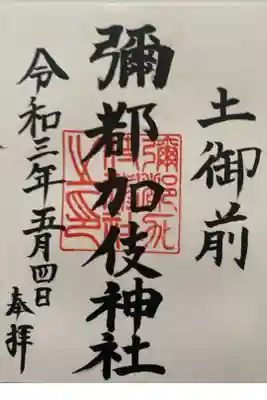 土御前
彌都加伎神社
令和三年五月四日
奉拝